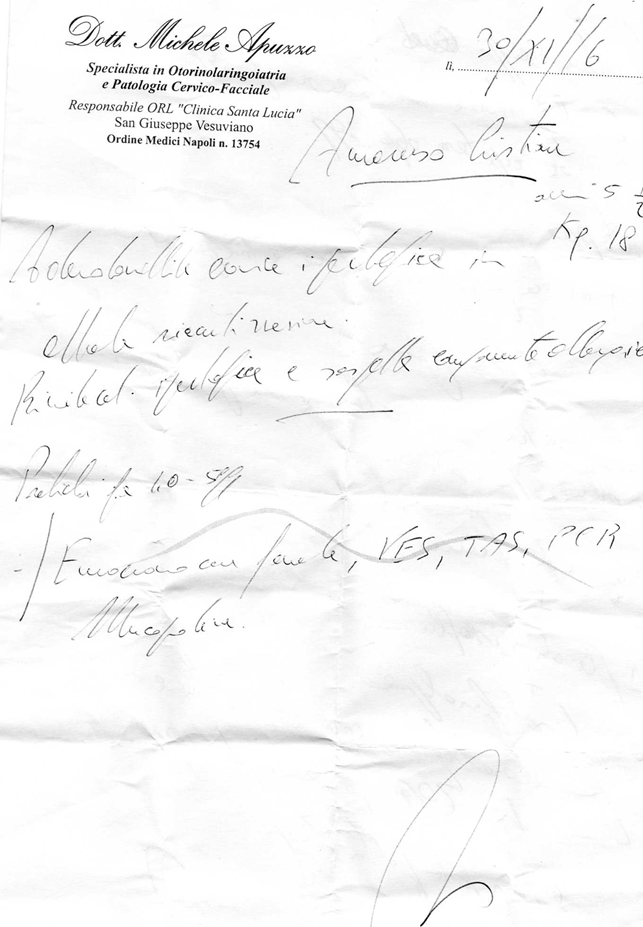 Dott. Michele Apuzzo
Specialista in Otorinolaringoiatria
e Patologia Cervico-Facciale
Responsabile ORL "Clinica Santa Lucia"
San Giuseppe Vesuviano
Ordine Medici Napoli n. 13754
lì, 30/XI/16
Amoruso Cristian
anni 5 1/2
Kg. 18
Adenotonsillite cronica ipertrofica in
attuale riacutizzazione.
Rinite ipertrofica e sospetta componente allergica
Emocromo con formula, VES, TAS, PCR